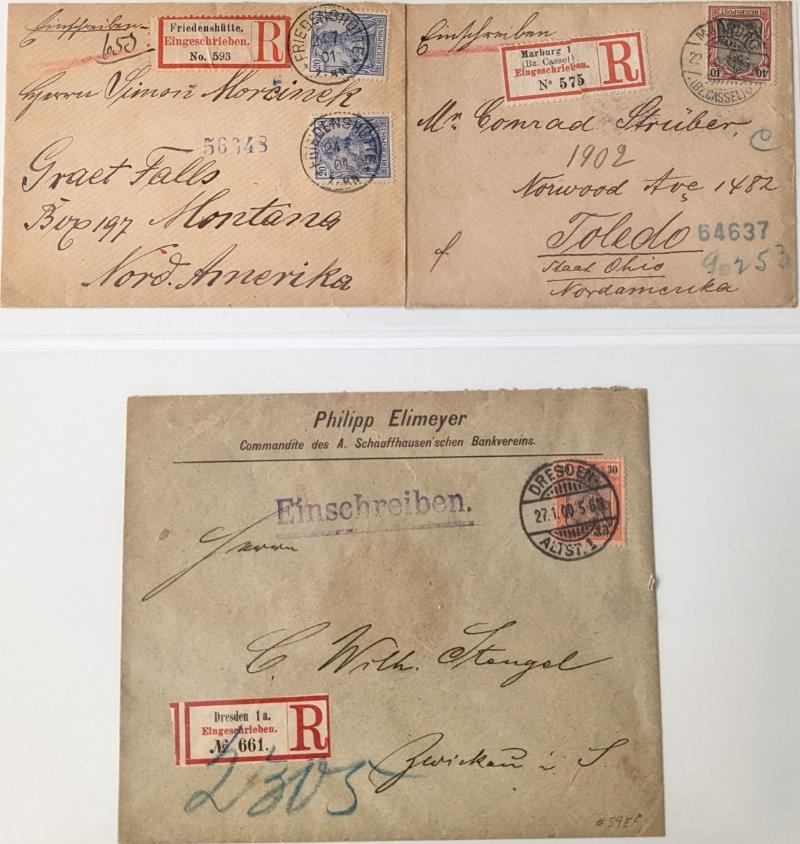 Einschreiben
653
Friedenshütte.
Eingeschrieben.
No. 593
R
FRIEDENSHÜTTE
01
20
REICHSPOST
Herrn Simon Morcinek
56348
FRIEDENSHÜTTE
24
01
20
REICHSPOST
Graet Falls
Box 197 Montana
Nord. Amerika
Einschreiben
Marburg 1
(Bz. Cassel)
Eingeschrieben.
Nº 575
R
REICHSPOST
40
40
MARBURG
(BZ. CASSEL)
Mr. Conrad Strüber,
1902
C
Norwood Ave 1482
Toledo
64637
Staat Ohio
90253
Nordamerika
Philipp Elimeyer
Commandite des A. Schaaffhausen'schen Bankvereins.
Einschreiben.
30
30
DRESDEN-
27.1.00.5-6N.
ALTST.1
Herrn
C. Wilh. Stengel
Dresden 1a.
Eingeschrieben.
№ 661.
R
Zwickau i. S.
2305